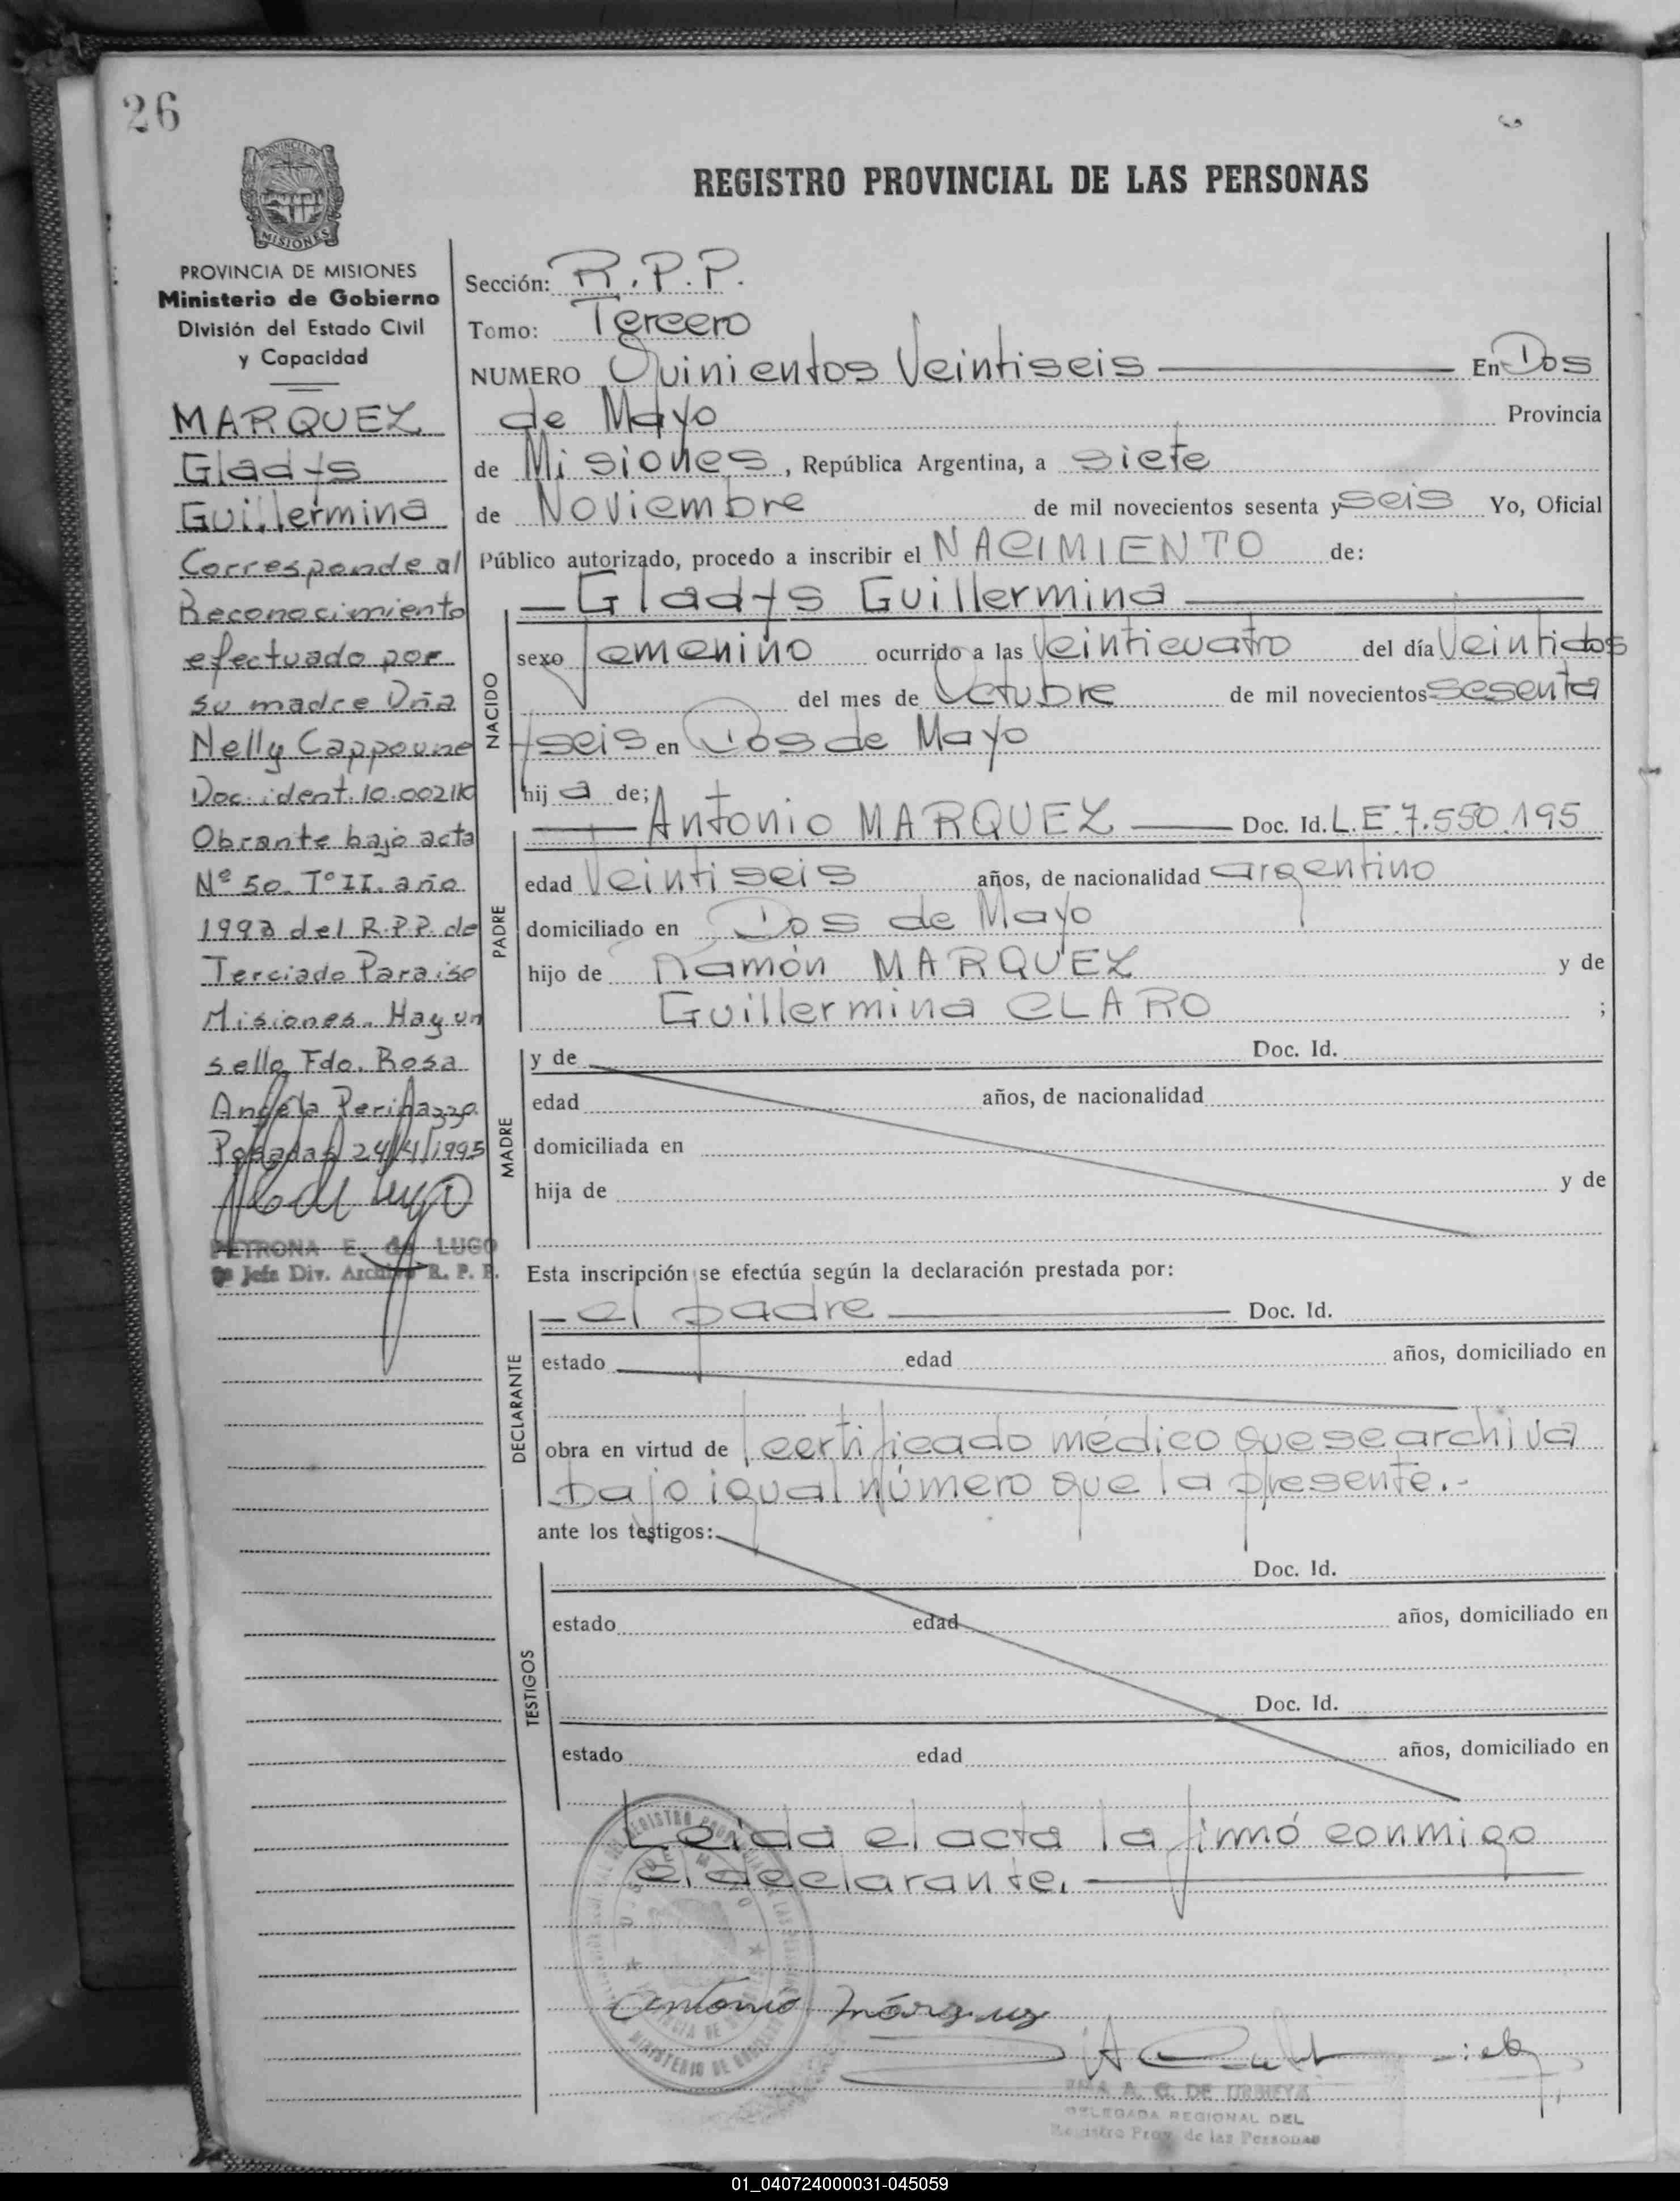 26
PROVINCIA DE MISIONES
REGISTRO PROVINCIAL DE LAS PERSONAS
PROVINCIA DE MISIONES
Ministerio de Gobierno
División del Estado Civil
y Capacidad
MARQUEZ
Gladys
Guillermina
Corresponde al
Reconocimiento
efectuado por
su madre Dña
Nelly Cappoune
Doc. ident. 10.002110
Obrante bajo acta
Nº 50. Tº II. año
del R.P.P. de
Terciado Paraiso
Misiones. Hay un
sello Fdo. Rosa
Angela
Posadas 24/4/1995
PETRONA E. de LUGO
Jefa Div. Archivo R. P. P.
Sección: R.P.P.
Tomo: Tercero
NUMERO Quinientos Veintiseis En Dos
de Mayo Provincia
de Misiones, República Argentina, a siete
de Noviembre de mil novecientos sesenta y seis Yo, Oficial
Público autorizado, procedo a inscribir el NACIMIENTO de:
NACIDO
Gladys Guillermina
sexo femenino ocurrido a las Veinticuatro del día Veintidos
del mes de Octubre de mil novecientos sesenta
y seis en Dos de Mayo
hij a de;
PADRE
Antonio MARQUEZ Doc. Id. L.E.7.550.195
edad Veintiseis años, de nacionalidad argentino
domiciliado en Dos de Mayo
hijo de Ramón MARQUEZ y de
Guillermina CLARO ;
MADRE
y de Doc. Id.
edad años, de nacionalidad
domiciliada en
hija de y de
Esta inscripción se efectúa según la declaración prestada por:
DECLARANTE
el padre Doc. Id.
estado edad años, domiciliado en
obra en virtud de certificado médico que se archiva
bajo igual número que la presente.-
ante los testigos:
TESTIGOS
Doc. Id.
estado edad años, domiciliado en
Doc. Id.
estado edad años, domiciliado en
Leida el acta la firmó conmigo
el declarante.
Antonio Márquez
A. G. DE URBIETA
DELEGADA REGIONAL DEL
Registro Prov. de las Personas
01_040724000031-045059